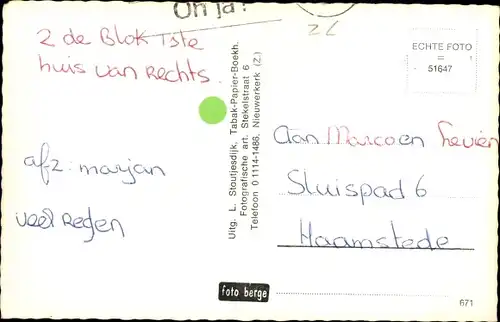 Oh ja!
ZL
2 de Blok 1ste
huis van Rechts.
ECHTE FOTO
=
51647
afz: marjan
veel Regen
Uitg. L. Stoutjesdijk, Tabak-Papier-Boekh.
Fotografische art. Stekelstraat 6
Telefoon 01114-1486. Nieuwerkerk (Z.)
Aan Marco en Levien
Sluispad 6
Haamstede
foto berge
671